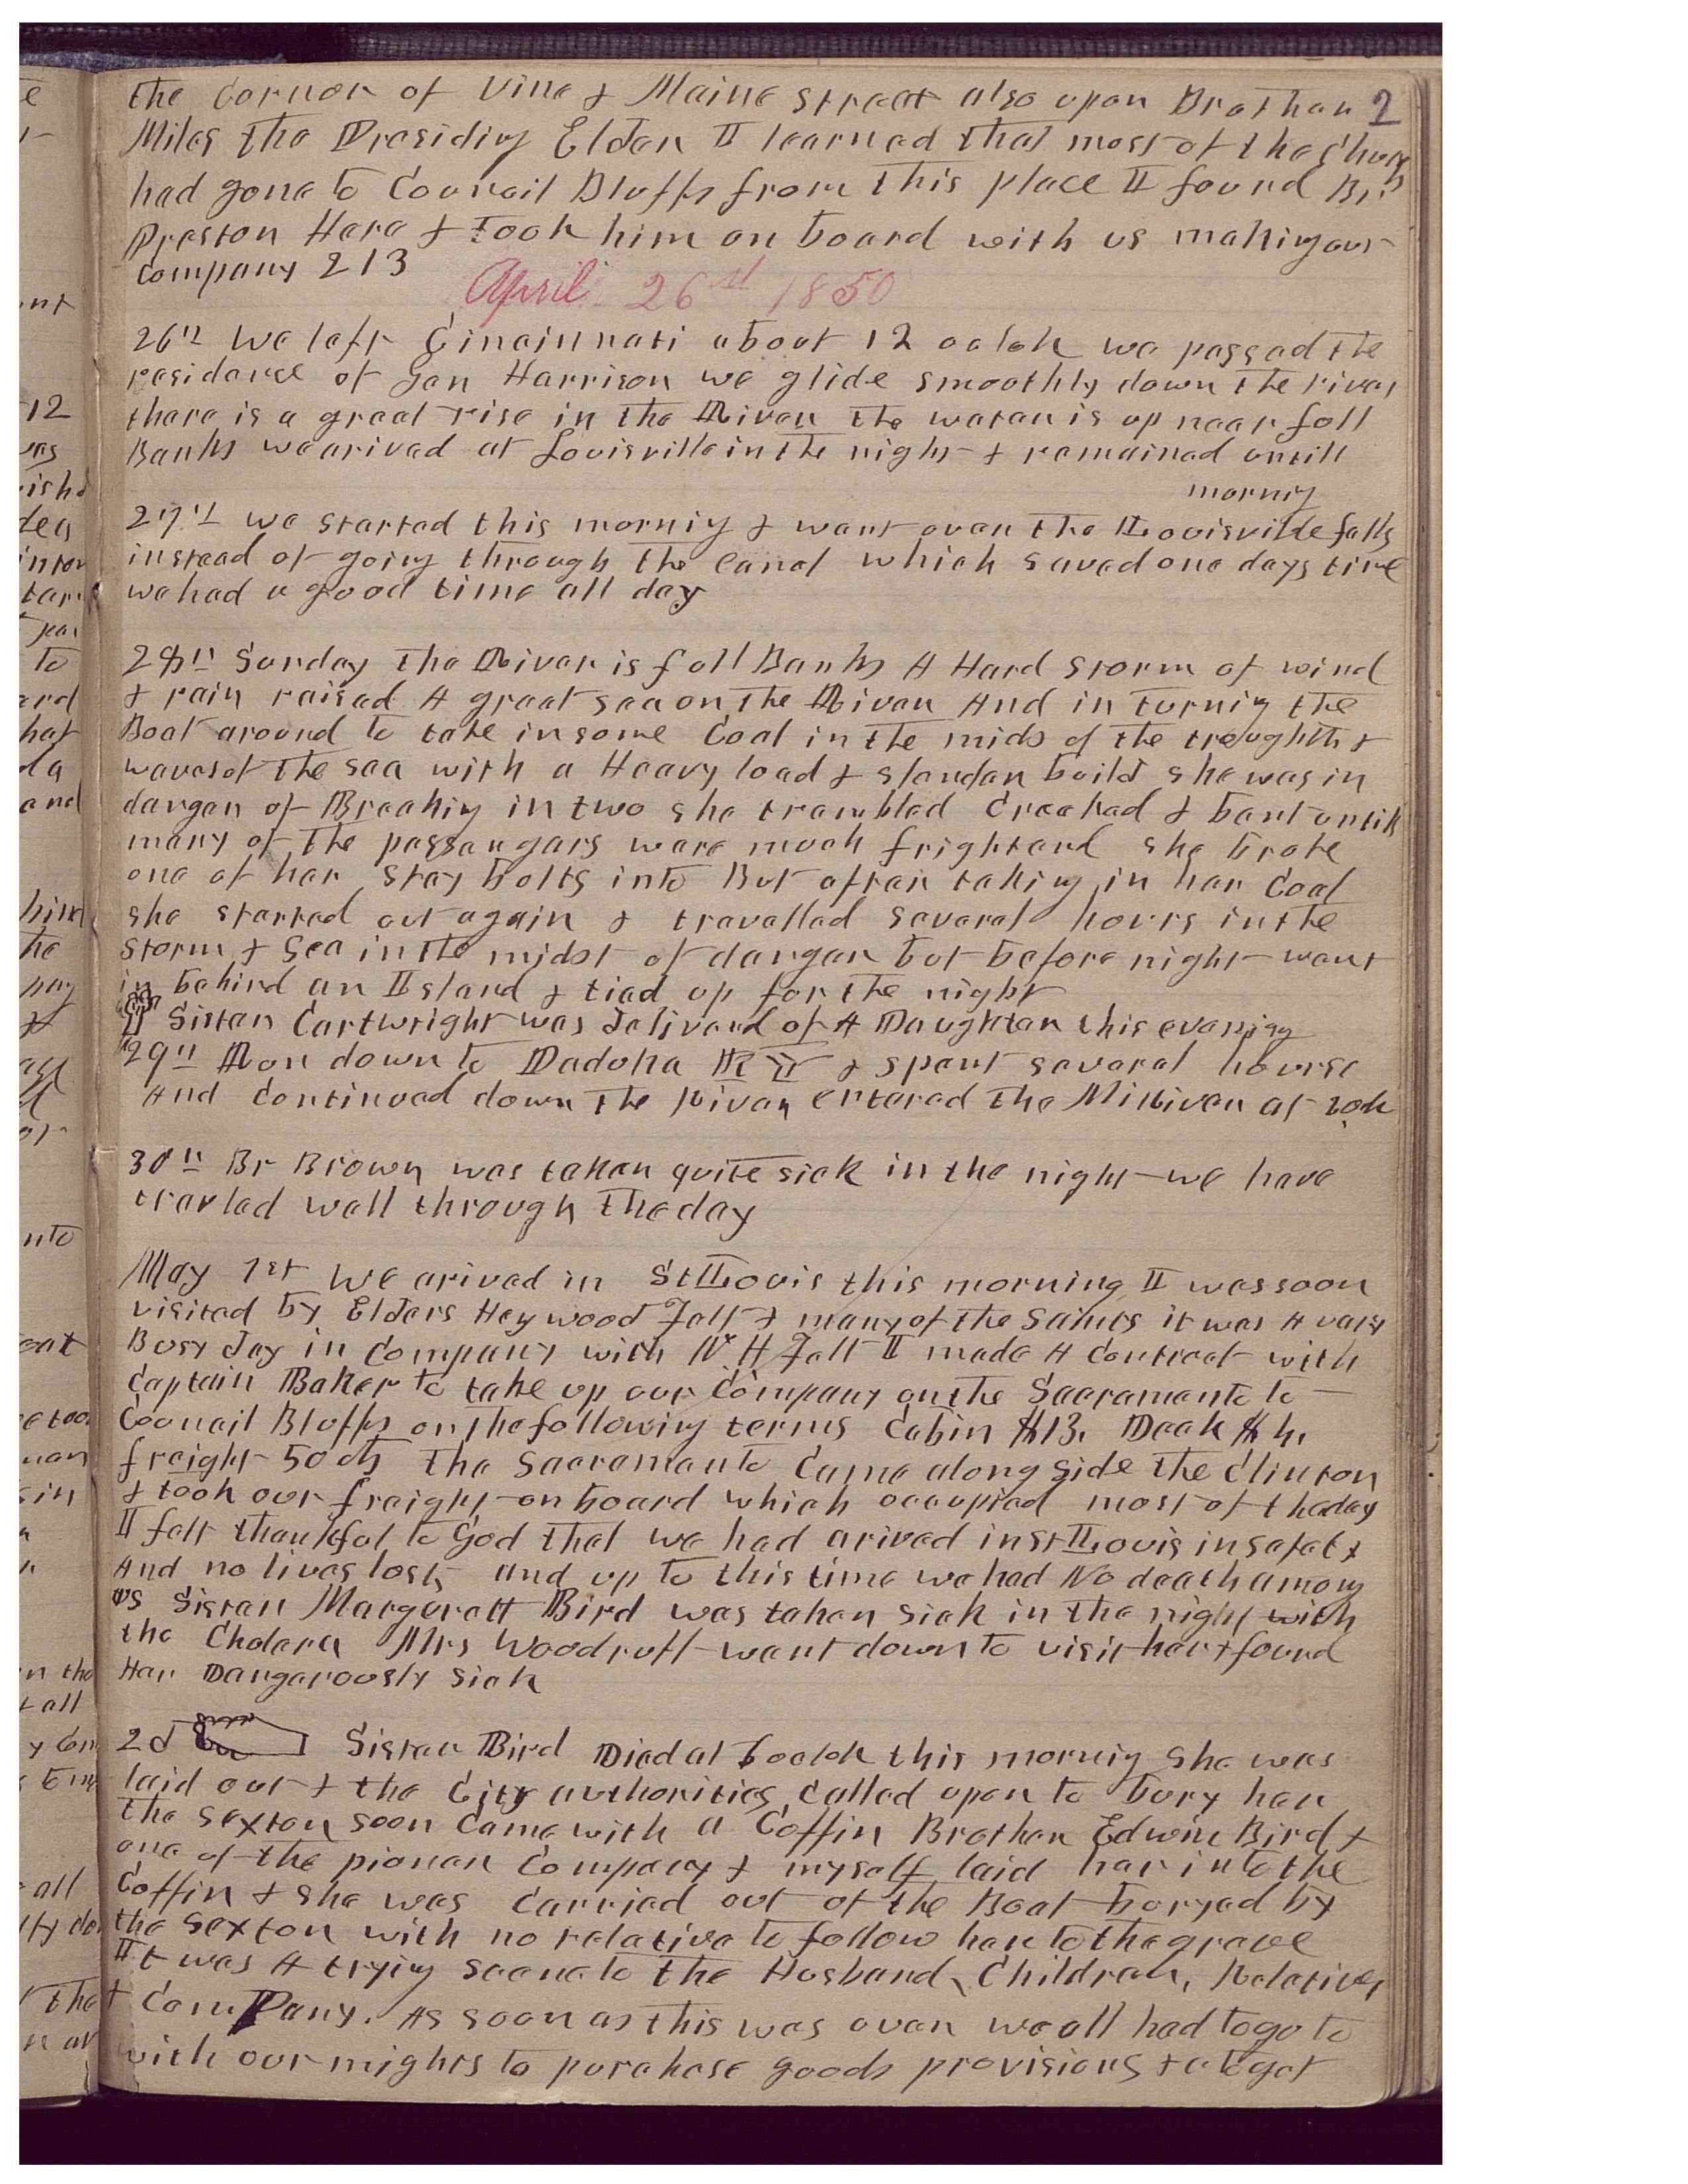 the Corner of Vine & Maine street also upon Brother 2
Miles the Presiding Elder I learned that most of the Church
had gone to Council Bluffs from this place I found Br
Preston Here & took him on board with us making our
company 213
April 26st 1850
26th We left Cincinnati about 12 oclok we passed the
residence of Gen Harrison we glide smoothly down the river
there is a great rise in the River the water is up near full
Banks we arived at Louisville in the night & remained untill
morning
27th we started this morning & went over the Louisville falls
instead of going through the canal which saved one days time
we had a good time all day
28th Sunday the River is full Banks A Hard storm of wind
& rain raised A great sea on the River And in turning the
Boat around to take in some Coal in the mids of the &
waves of the sea with a Heavy load & slender build she was in
danger of Breaking in two she trembled Creeked & bent untill
many of the passengers were much frightend she broke
one of her stay bolts into But after taking in her Coal
she started out again & travelled several hours in the
storm & sea in the midst of danger but before night went
in behind an Island & tied up for the night
Sister Cartwright was delivered of A Daughter this evening
29th Ron down to Paduka & spent several hourse
And continued down the River entered the M River at
30th Br Brown was taken quite sick in the night we have
travled well through the day
May 1st We arived in St Louis this morning I was soon
visited by Elders Heywood Felt & many of the Saints it was A vary
Busy day in company with N H Felt I made A contract with
Captain Baker to take up our Company on the Sacramento to
Council Bluffs on the following terms Cabin $13. Deck $4.
freight 50 cts the Sacramento Came along side the Clinton
& took our freight on board which occupied most of the day
I felt thankful to God that we had arived in St Louis in safety
And no lives lost, and up to this time we had No death among
us Sister Margerett Bird was taken sick in the night with
the Cholera Mrs Woodruff went down to visit her & found
Her Dangerously sick
2d Sister Bird Died at 6 oclok this morning she was
laid out & the City authorities called upon to bury her
the sexton soon came with a Coffin Brother Edwin Bird &
one of the pioneer Company & myself laid her into the
Coffin & she was carried out of the Boat buryed by
the sexton with no relative to follow her to the grave
It was A trying scene to the Husband, Children, Relatives
& ComPany. As soon as this was over we all had to go to
with our mights to purchase goods provisions &c to get